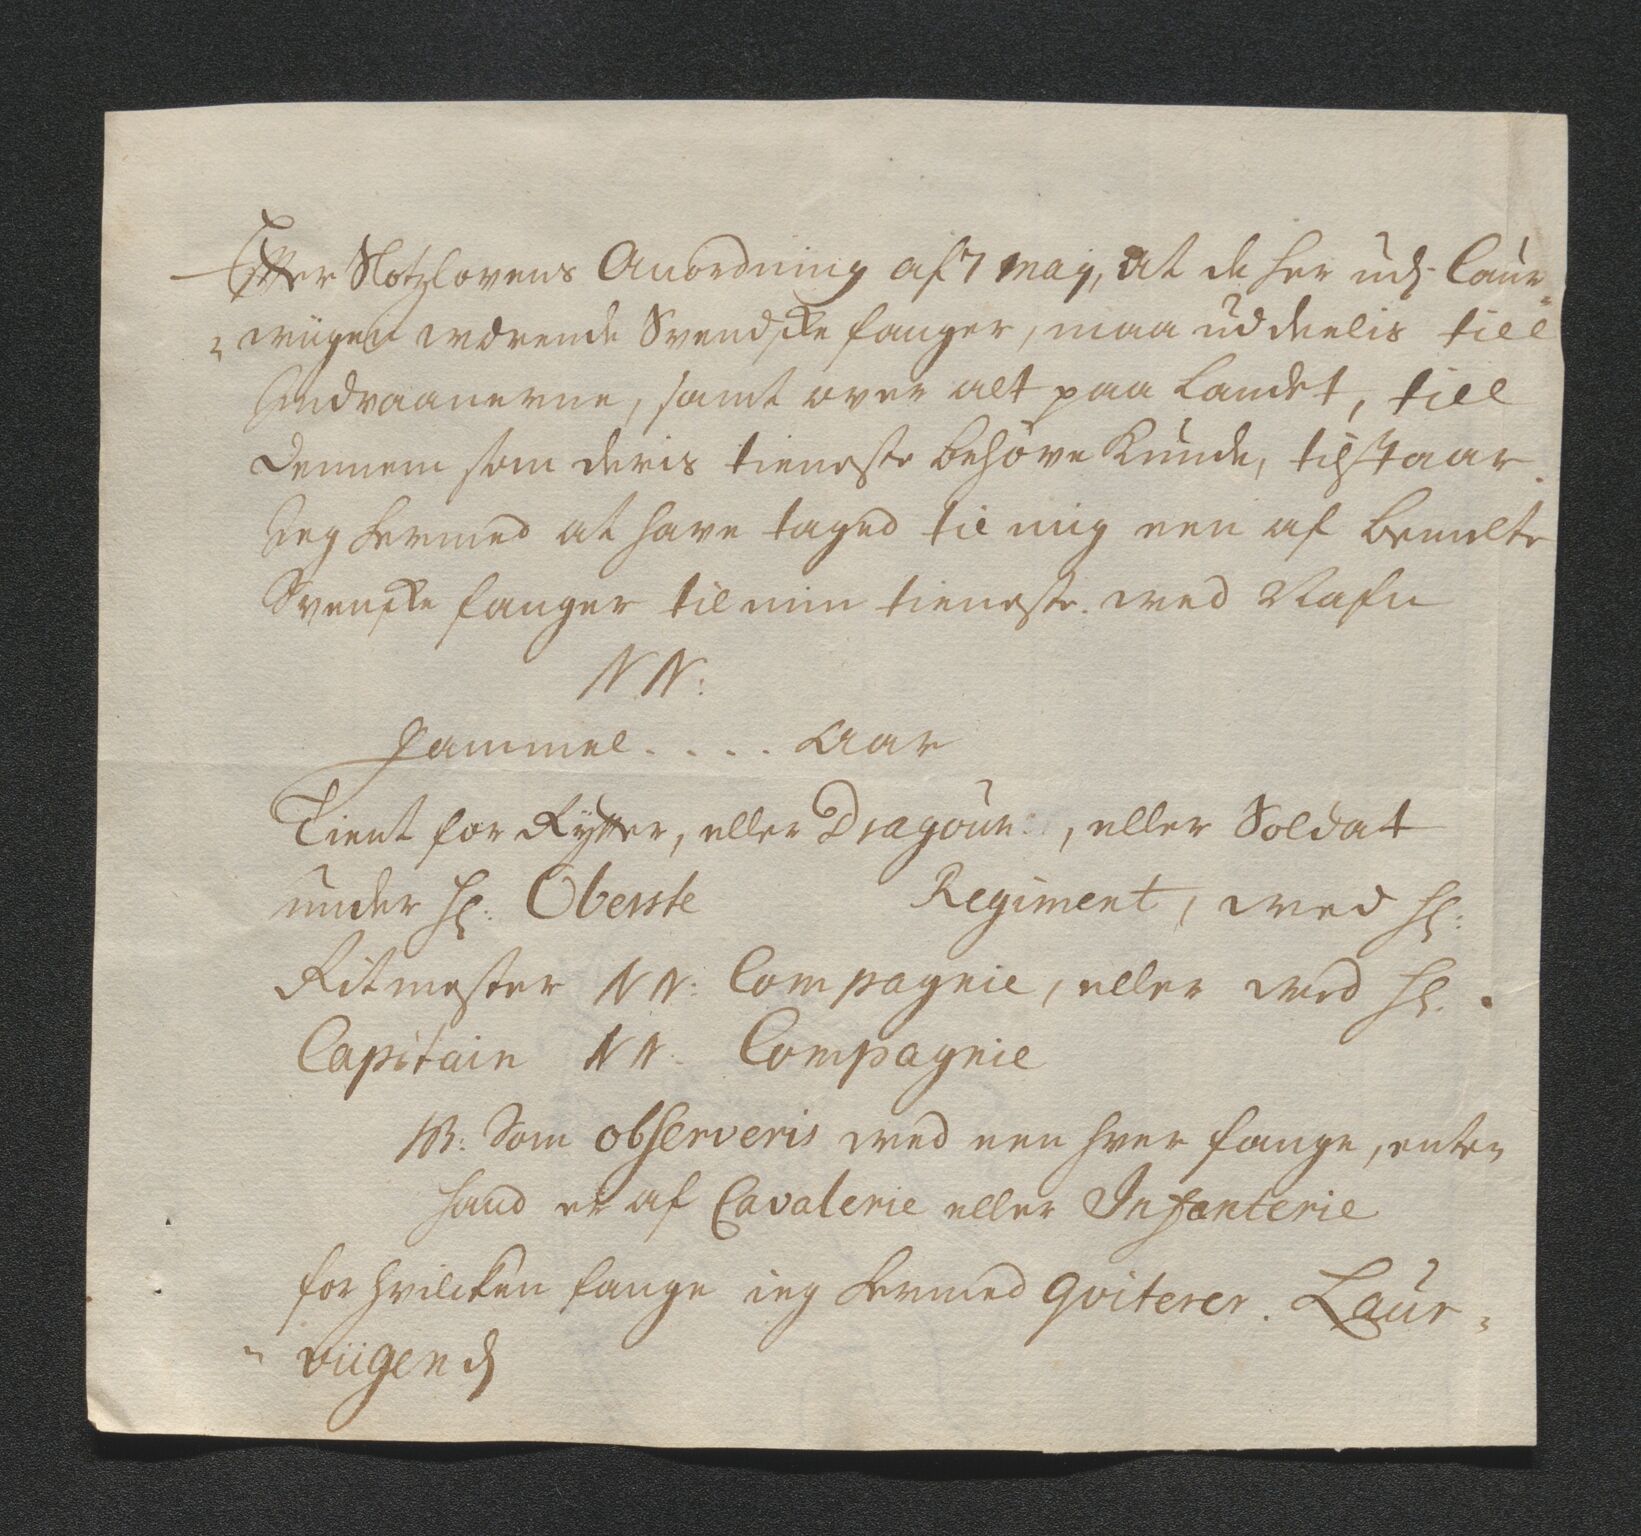 Effter Slotzlovens Anordning af 7 maÿ, at de her udj Laur-
wiigen værende Svendske fanger, maa uddeelis till
Indvaanerne, samt over alt paa Landet, till
Dennem som deris tieneste behöve Kunde, tilstaar
Jeg hermed at have taged til mig een af bemelte
Svenske fanger til min tieneste. ved Nafn
NN:
Gammel . . . . Aar
Tient for Rÿtter, eller Dragoun, eller Soldat
under Hr: Oberste Regiment, ved Hr:
Ritmester NN: Compagnie, eller ved Hr.
Capitain NN: Compagnie
NB: Som observeris ved een hver fange, enten
hand er af Cavalerie eller Infanterie
for hvilcken fange ieg hermed Qviterer. Laur-
viigen d